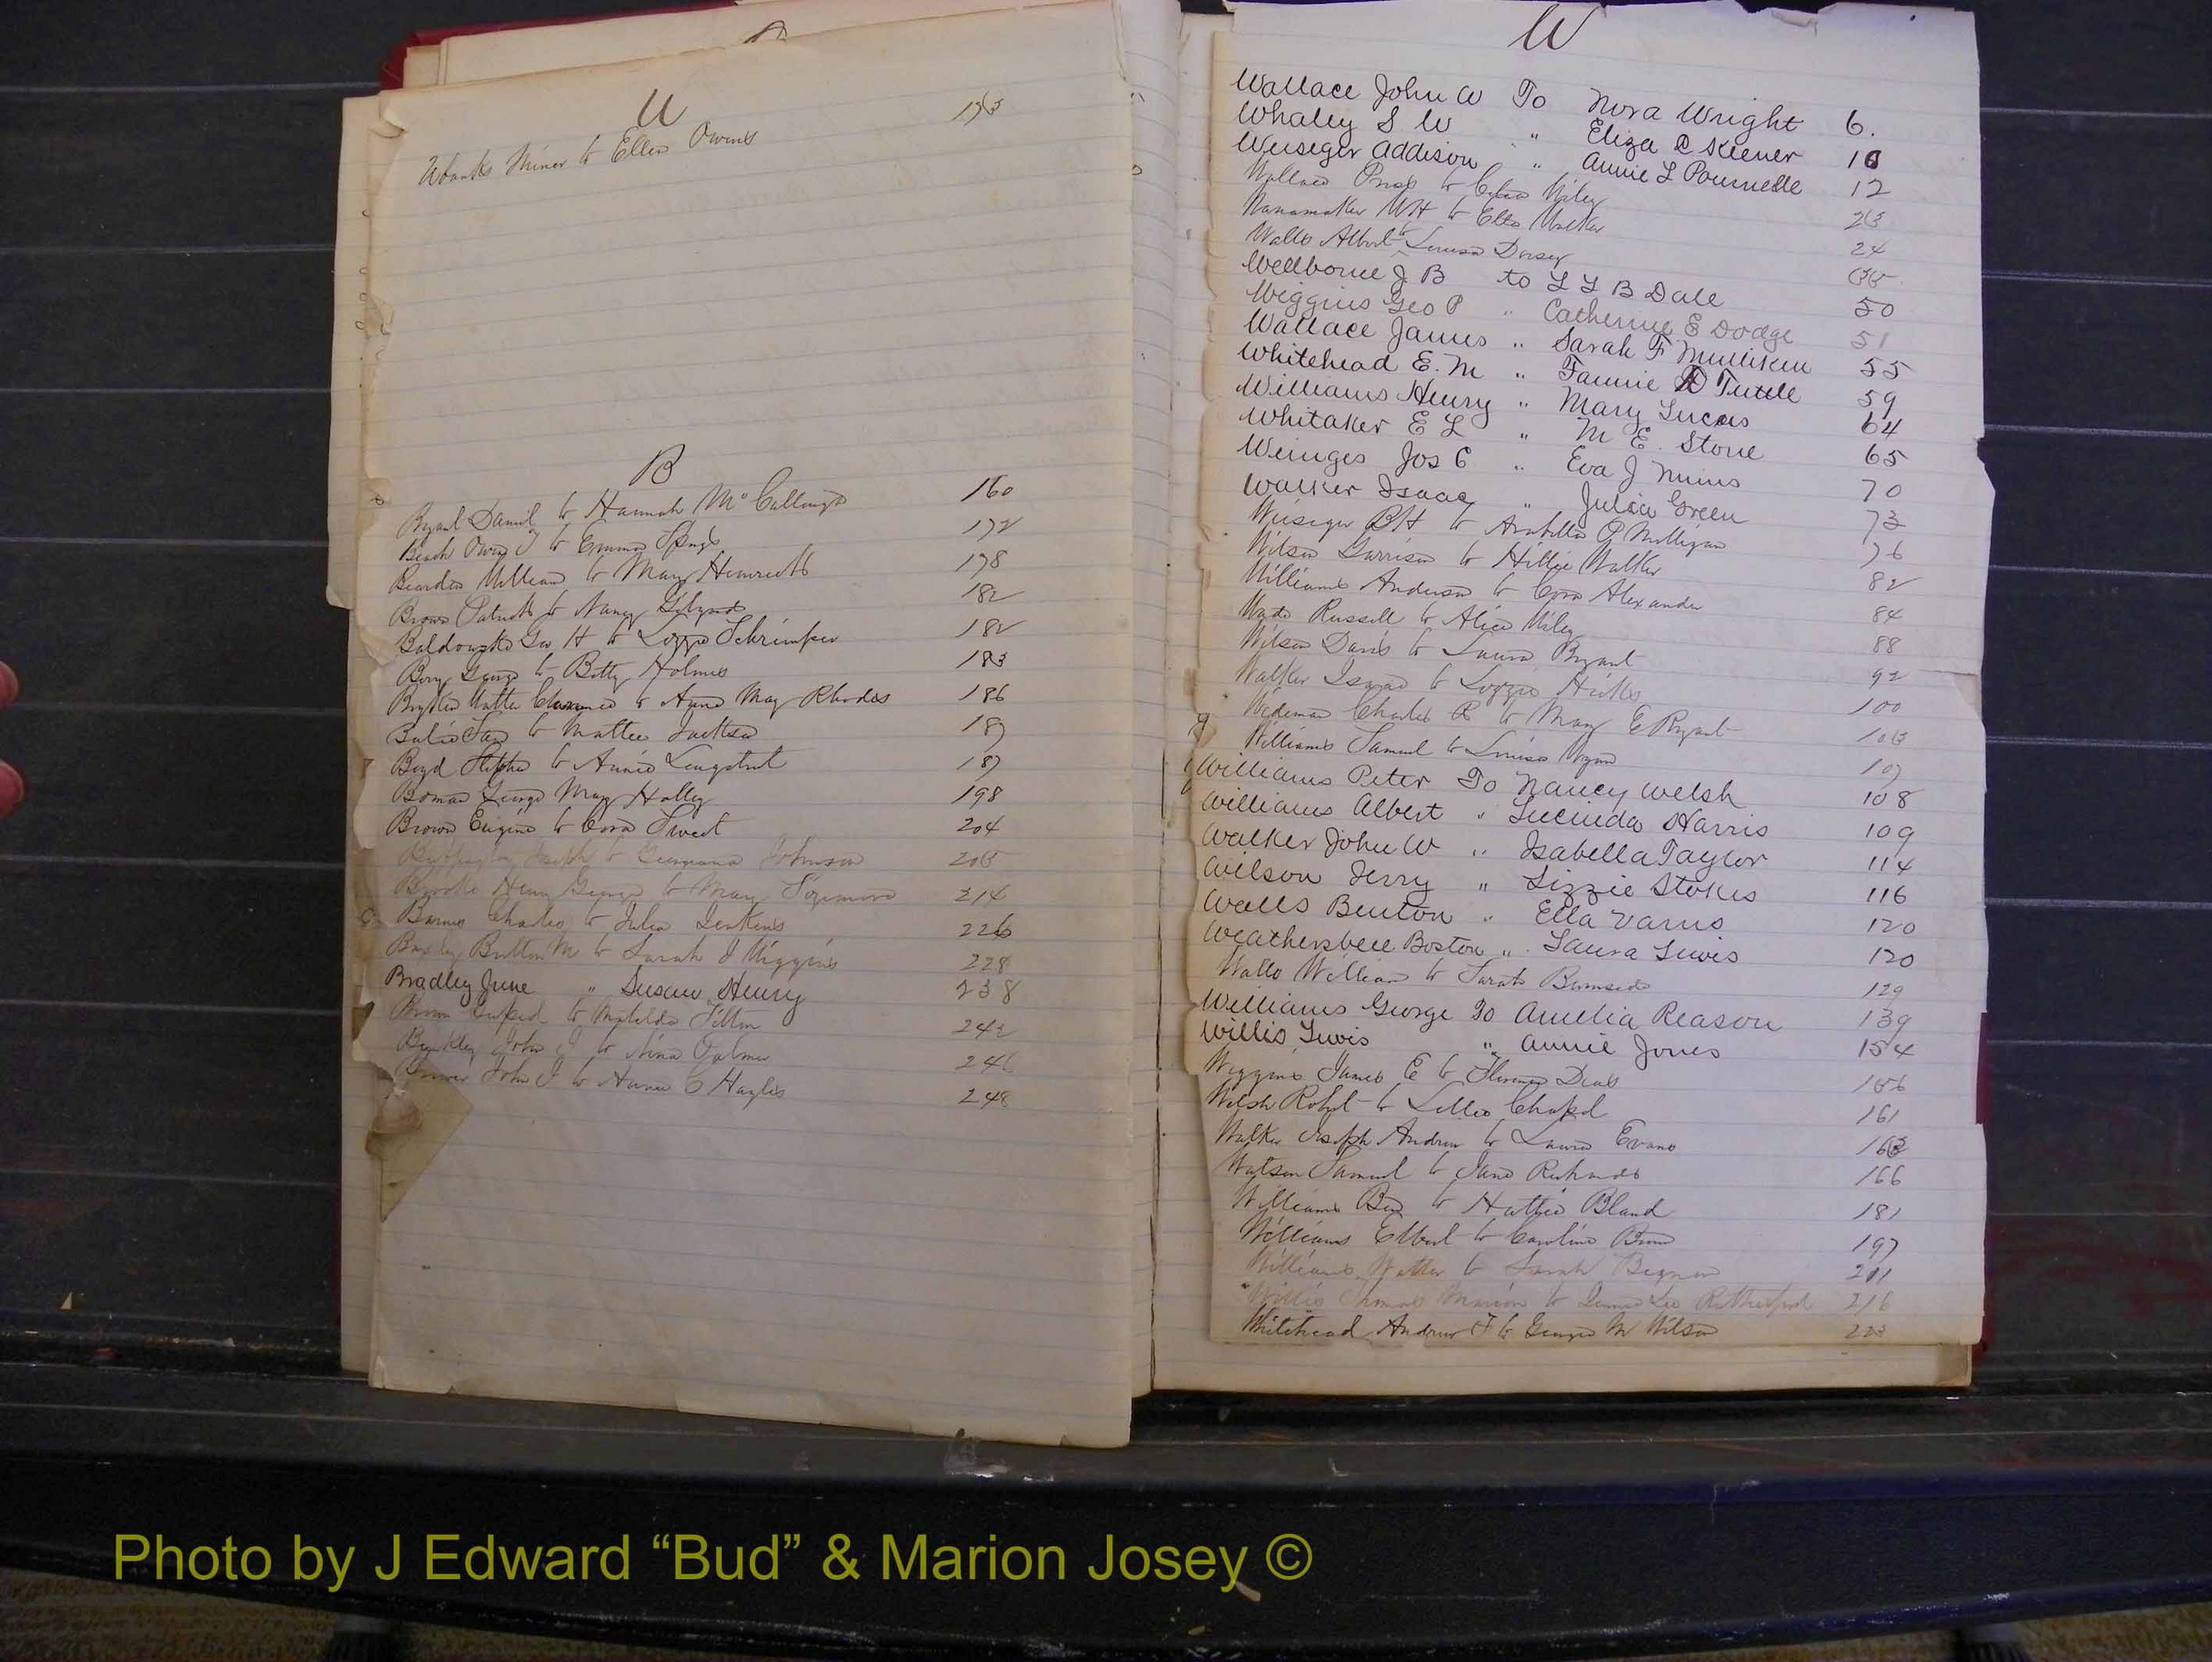 U
Ubanks Miner to Ellen Owens 173
B
Bryant Daniel to Hannah McCullough 160
Beach Owen J to Emma 172
Bearden William to Mary 178
Brown Patrick to Nancy 182
Baldowski Geo H to Lizzie Schrimper 182
Berry George to Betty Holmes 183
Walter Clarence to Anna May Rhodes 186
to Mattie Jackson 187
Boyd Stephen to Annie Longstreet 187
Boman George Mary Holley 198
Brown Eugene to Cora Sweet 204
Buffington Joseph to Georgiana Johnson 205
Brooks Henry George to Mary 214
Barnes Charles to Julia Jenkins 226
Baxley Britton M to Sarah J Wiggins 228
Bradley June " Susan Henry 238
Brown to Matilda Tilton 242
John J to Nina 246
John J to Annie C Hayles 248
W
Wallace John W To Nora Wright 6.
Whaley S W " Eliza C Keener 10
Weiseger Addison " Annie L Pournelle 12
Wallace to Celia Wiley 23
Wanamaker WH to Ella Walker 24
Walls Albert to Louisa Dorsey 35
Wellborne J B to L L B Dale 50
Wiggins Geo P " Catherine E Dodge 51
Wallace James " Sarah F Mulliken 55
Whitehead E. M " Fannie Tuttle 59
Williams Henry " Mary Lucas 64
Whitaker E L " M E. Stone 65
Weinges Jos C " Eva J Mims 70
Walker Isaac " Julia Green 73
Weiseger BH to Arabella P Milligan 76
Wilson Garrison to Hillie Walker 82
Williams Anderson to Cora Alexander 84
Wade Russell to Alice Wiley 88
Wilson Davis to Laura Bryant 92
Walker Isaac to Lizzie Hicks 100
Wedeman Charles R to Mary E Bryant 103
Williams Samuel to Louisa Wynn 107
Williams Peter To Nancy Welsh 108
Williams Albert " Lucinda Harris 109
Walker John W " Isabella Taylor 114
Wilson Jerry " Lizzie Stokes 116
Walls Benton " Ella Varns 120
Weathersbee Boston " Laura Lewis 120
Walls William to Sarah Burnside 129
Williams George To Amelia Reason 139
Willis Lewis " Annie Jones 154
Wiggins James E to Florence Deas 156
Welsh Robert to Lillie Chapel 161
Walker Joseph Andrew to Laura Evans 163
Watson Samuel to Jane Richards 166
Williams Ben to Hattie Bland 181
Williams Elbert to Caroline Brown 197
Williams Walter to Sarah 211
Willis Thomas Marion to Lee Rutherford 216
Whitehead Andrew F to Georgia M Wilson 223
Photo by J Edward “Bud” & Marion Josey ©